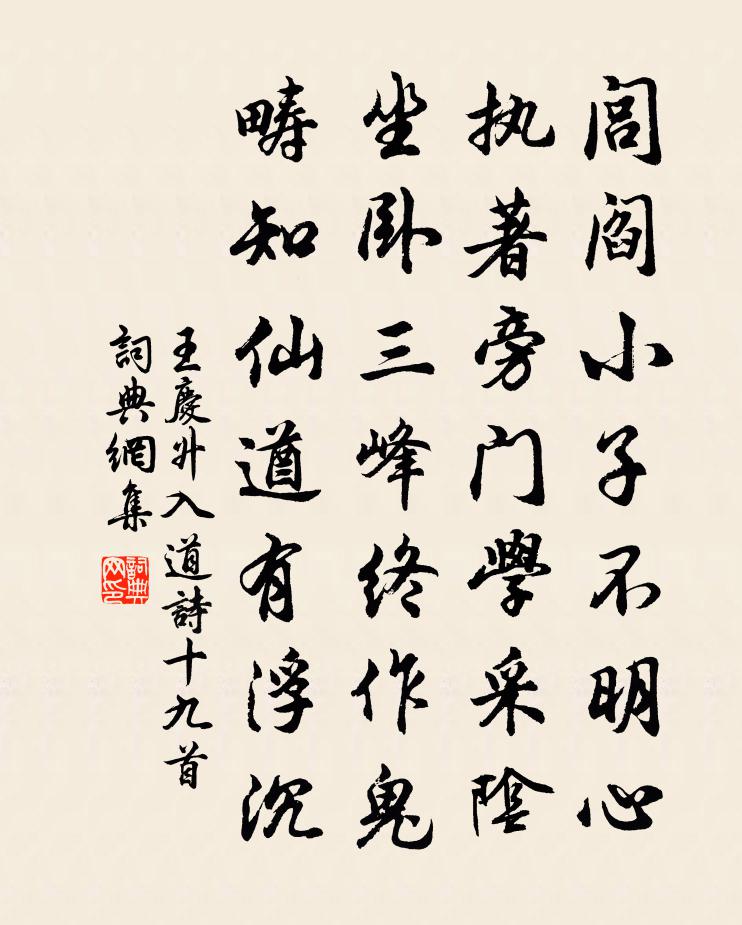 闾阎小子不明心
执著旁门學采陰
坐卧三峰终作鬼
疇知仙道有浮沉
王慶升入道詩十九首
詞典網集
詞典网印